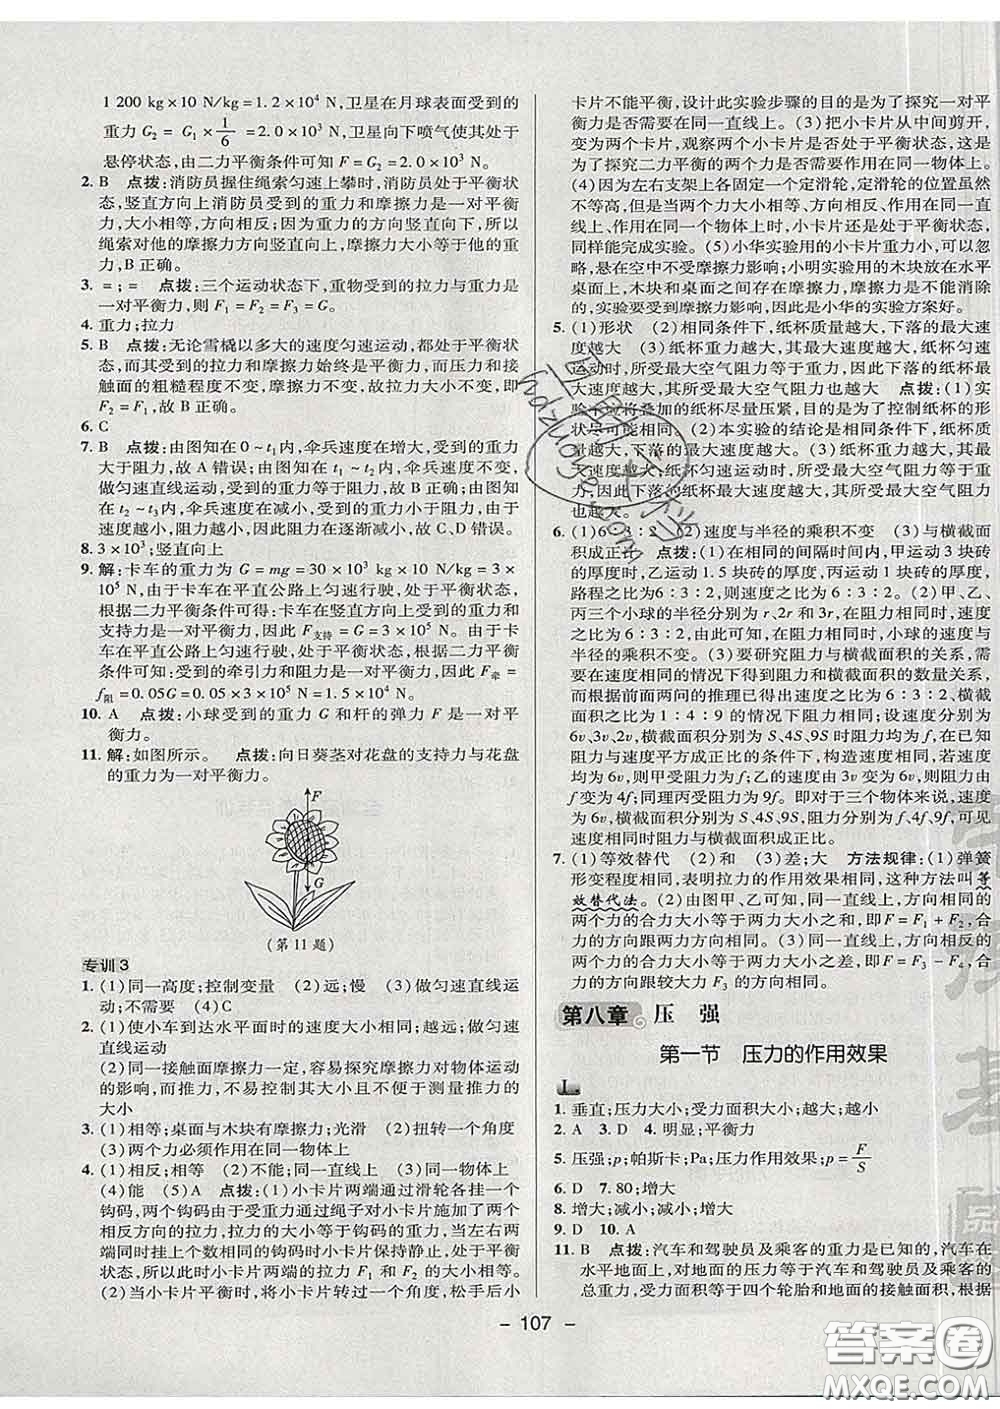 1 200 kg×10 N/kg＝1.2×10⁴ N,卫星在月球表面受到的
重力 G₂ ＝ G₁ × 1/6 ＝2.0×10³ N,卫星向下喷气使其处于
悬停状态,由二力平衡条件可知 F＝G₂＝2.0×10³ N。
2. B 点拨:消防员握住绳索匀速上攀时,消防员处于平衡状
态,竖直方向上消防员受到的重力和摩擦力是一对平衡
力,大小相等,方向相反;因为重力的方向竖直向下,所以
绳索对他的摩擦力方向竖直向上,摩擦力大小等于他的重
力,B 正确。
3. ＝;＝ 点拨:三个运动状态下,重物受到的拉力与重力是
一对平衡力,则 F₁＝F₂＝F₃＝G。
4. 重力;拉力
5. B 点拨:无论雪橇以多大的速度匀速运动,都处于平衡状
态,而其受到的拉力和摩擦力始终是平衡力,而压力和接
触面的粗糙程度不变,摩擦力不变,故拉力大小不变,即
F₂＝F₁,故 B 正确。
6. C
7. B 点拨:由图知在 0～t₁内,伞兵速度在增大,受到的重力
大于阻力,故 A 错误;由图知在 t₁～t₂内,伞兵速度不变,
做匀速直线运动,受到的重力等于阻力,故 B 正确;由图知
在 t₂～t₃内,伞兵速度在减小,但受到的重力不变,由于
速度越小,阻力越小,因此阻力在逐渐减小,故 C、D 错误。
8. 3×10³;竖直向上
9. 解:卡车的重力为 G＝mg＝30×10³ kg×10 N/kg＝3×
10⁵ N,卡车在平直公路上匀速行驶,处于平衡状态,
根据二力平衡条件可得:卡车在竖直方向上受到的重力和
支持力是一对平衡力,因此 F支持＝G＝3×10⁵ N;由于卡
车在平直公路上匀速行驶,处于平衡状态,根据二力平衡
条件可知:受到的牵引力和阻力是一对平衡力,因此 F牵＝
f阻＝0.05G＝0.05×3×10⁵ N＝1.5×10⁴ N。
10. A 点拨:小球受到的重力 G 和杆的弹力 F 是一对平
衡力。
11. 解:如图所示。 点拨:向日葵茎对花盘的支持力与花盘
的重力为一对平衡力。
F
G
(第 11 题)
专训 3
1. (1)同一高度;控制变量 (2)远;慢 (3)做匀速直线运
动;不需要 (4)C
2. (1)使小车到达水平面时的速度大小相同;越远;做匀速
直线运动
(2)同一接触面摩擦力一定,容易探究摩擦力对物体运动
的影响,而推力,不易控制其大小且不便于测量推力的
大小
3. (1)相等;桌面与木块有摩擦力;光滑 (2)扭转一个角度
(3)两个力必须作用在同一物体上
4. (1)相反;相等 (2)不能;同一直线上 (3)同一物体上
(4)能 (5)A 点拨:(1)小卡片两端通过滑轮各挂一个
钩码,两个钩码由于受重力通过绳子对小卡片施加了两
个方向相反的拉力,拉力的大小等于钩码的重力。当左右两
端同时挂上个数相同的钩码时小卡片保持静止,处于平衡
状态,所以此时小卡片两端的拉力 F₁ 和 F₂ 的大小相等。
(2)当小卡片平衡时,将小卡片转过一个角度,松手后小
卡片不能平衡,设计此实验步骤的目的是为了探究一对平
衡力是否需要在同一直线上。(3)把小卡片从中间剪开,
变为两个小卡片,观察两个小卡片是否处于平衡状态,这
是为了探究二力平衡的两个力是否需要作用在同一物体上。
(4)因为左右支架上各固定一个定滑轮,定滑轮的位置虽然
不等高,但只要两个力大小相等、方向相反、作用在同一直
线上、作用在同一个物体上时,小卡片还是处于平衡状态,
同样能完成实验。(5)小华实验用的小卡片重力小,可以
忽略,悬在空中不受摩擦力影响;小明实验用的木块放在水平
桌面上,木块和桌面之间存在摩擦力,摩擦力是不能消除
的,实验要受到摩擦力影响,因此是小华的实验方案好。
5. (1)形状 (2)相同条件下,纸杯质量越大,下落的最大速
度越大 (3)纸杯重力越大,其最大速度越大,纸杯匀速
运动时,所受最大空气阻力等于重力,因此下落的纸杯最
大速度越大,其所受最大空气阻力也越大 点拨:(1)实
验中将叠加的纸杯尽量压紧,目的是为了控制纸杯的形
状尽可能相同。(2)本实验的结论是相同条件下,纸杯质
量越大,下落的最大速度越大。(3)纸杯重力越大,其最
大速度越大,纸杯匀速运动时,所受最大空气阻力等于重
力,因此下落的纸杯最大速度越大,其所受最大空气阻力
也越大。
6. (1)6∶3∶2 (2)速度与半径的乘积不变 (3)与横截
面积成正比 点拨:(1)在相同的间隔时间内,甲运动 3 块砖
的厚度时,乙运动 1.5 块砖的厚度,丙运动 1 块砖的厚度,
路程之比为 6∶3∶2,因此速度之比为 6∶3∶2。(2)甲、乙、
丙三个小球的半径分别为 r、2r 和 3r,在阻力相同时,速度
之比为 6∶3∶2,由此可知,在阻力相同时,小球的速度与
半径的乘积不变。(3)要研究阻力与横截面积的关系,需
要在速度相同的情况下得到阻力和横截面积的数量关系,
而根据前面两问的推理已经得出速度之比为 6∶3∶2、横截
面积之比为 1∶4∶9 的情况下阻力相同;设速度分别为
6v、3v、2v,横截面积分别为 S、4S、9S 时阻力都为 f,根据
阻力与速度平方成正比的条件下,构造速度相同,若都为
6v,则甲受阻力为 f;乙的速度由 3v 变为 6v,则阻力由
f 变为 4f;同理丙受阻力为 9f。即对于三个物体来说,速度
为 6v,横截面积分别为 S、4S、9S,阻力分别为 f、4f、9f,可见
速度相同时阻力与横截面积成正比。
7. (1)等效替代 (2)和 (3)差;大 方法规律:(1)弹簧
形变程度相同,表明拉力的作用效果相同,这种方法叫等
效替代法。(2)由图甲、乙可知,同一直线上,方向相同的
两个力的合力大小等于两力大小之和,即F＝F₁＋F₂,合
力的方向跟两力方向相同。(3)同一直线上,方向相反的
两个力的合力大小等于两力大小之差,即 F＝F₃－F₄,合
力的方向跟较大力 F₃ 的方向相同。
第八章 压 强
第一节 压力的作用效果
1. 垂直;压力大小;受力面积大小;越大;越小
2. A 3. D 4. 明显;平衡力
5. 压强;p;帕斯卡;Pa;压力作用效果;p＝F/S
6. D 7. 80;增大
8. 增大;减小;减小;增大
9. D 10. A
11. B 点拨:汽车和驾驶员及乘客的重力是已知的,汽车在
水平地面上,对地面的压力等于汽车和驾驶员及乘客的
总重力,受力面积等于四个轮胎和地面的接触面积,根据
－ 107 －
答案圈
MXQE.COM